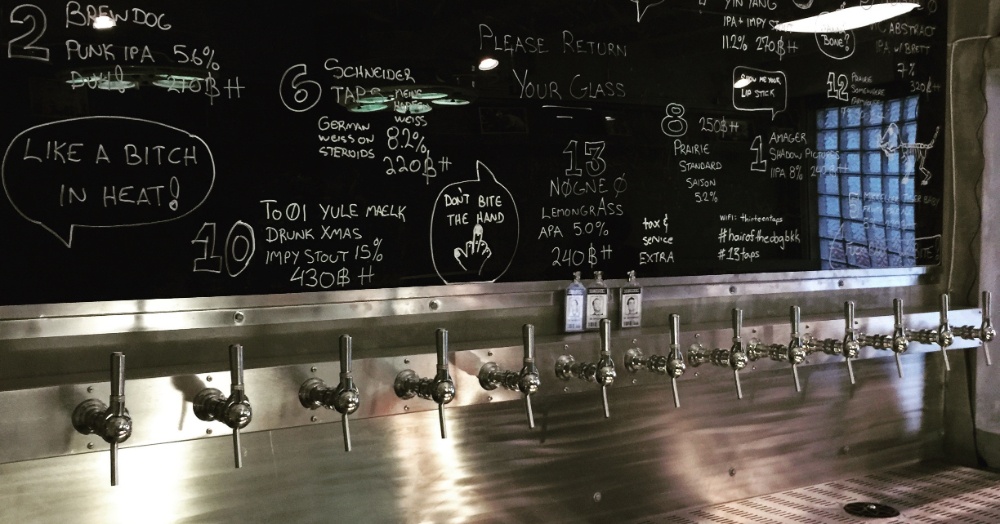 2
BREWDOG
PUNK IPA 5.6%
LIKE A BITCH
IN HEAT!
6
SCHNEIDER
GERMAN
WEISS ON
STEROIDS
WEISS
8.2%
220฿ H
10
TO Ø1 YULE MAELK
DRUNK XMAS
IMPY STOUT 15%
430฿ H
PLEASE RETURN
YOUR GLASS
DON'T BITE
THE HAND
13
NØGNE Ø
LEMONGRASS
APA 5.0%
240฿ H
tax &
service
EXTRA
YIN YANG
IPA + IMPY
11.2% 270฿ H
BONE?
SHOW ME YOUR
LIP STICK
8 250฿ H
PRAIRIE
STANDARD
SAISON
5.2%
1 AMAGER
SHADOW PICTURES
IIPA 8%
WiFi: thirteentaps
#hairofthedogbkk
#13taps
ABSTRACT
IPA W/ BRETT
7%
320฿ H
12 PRAIRIE
SOMEWHERE